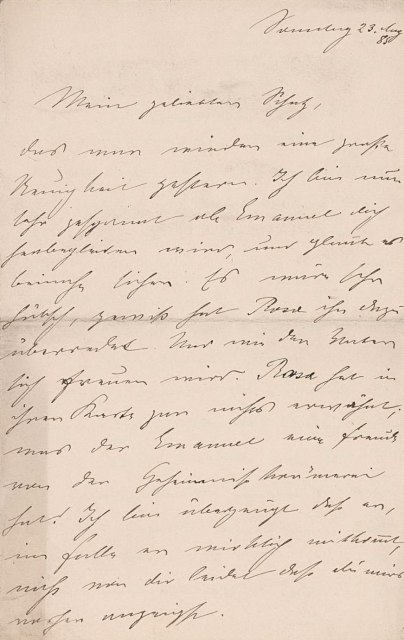 Sonntag 23. Aug
85
Mein geliebter Schatz,
das war wieder eine große
Neuigkeit gestern. Ich bin nun
sehr gespannt ob Emanuel dich
herbegleiten wird, und glaube es
beinahe sicher. Es wäre sehr
hübsch, gewiß hat Rosa ihn dazu
überredet. Nur wie der Vater
sich freuen wird. Rosa hat in
ihrer Karte gar nichts erwähnt,
was der Emanuel eine Freude
von der Geheimniskrämerei
hat! Ich bin überzeugt daß er,
im Falle er wirklich mitkommt,
nicht von dir leidet daß du mirs
vorher anzeigst.